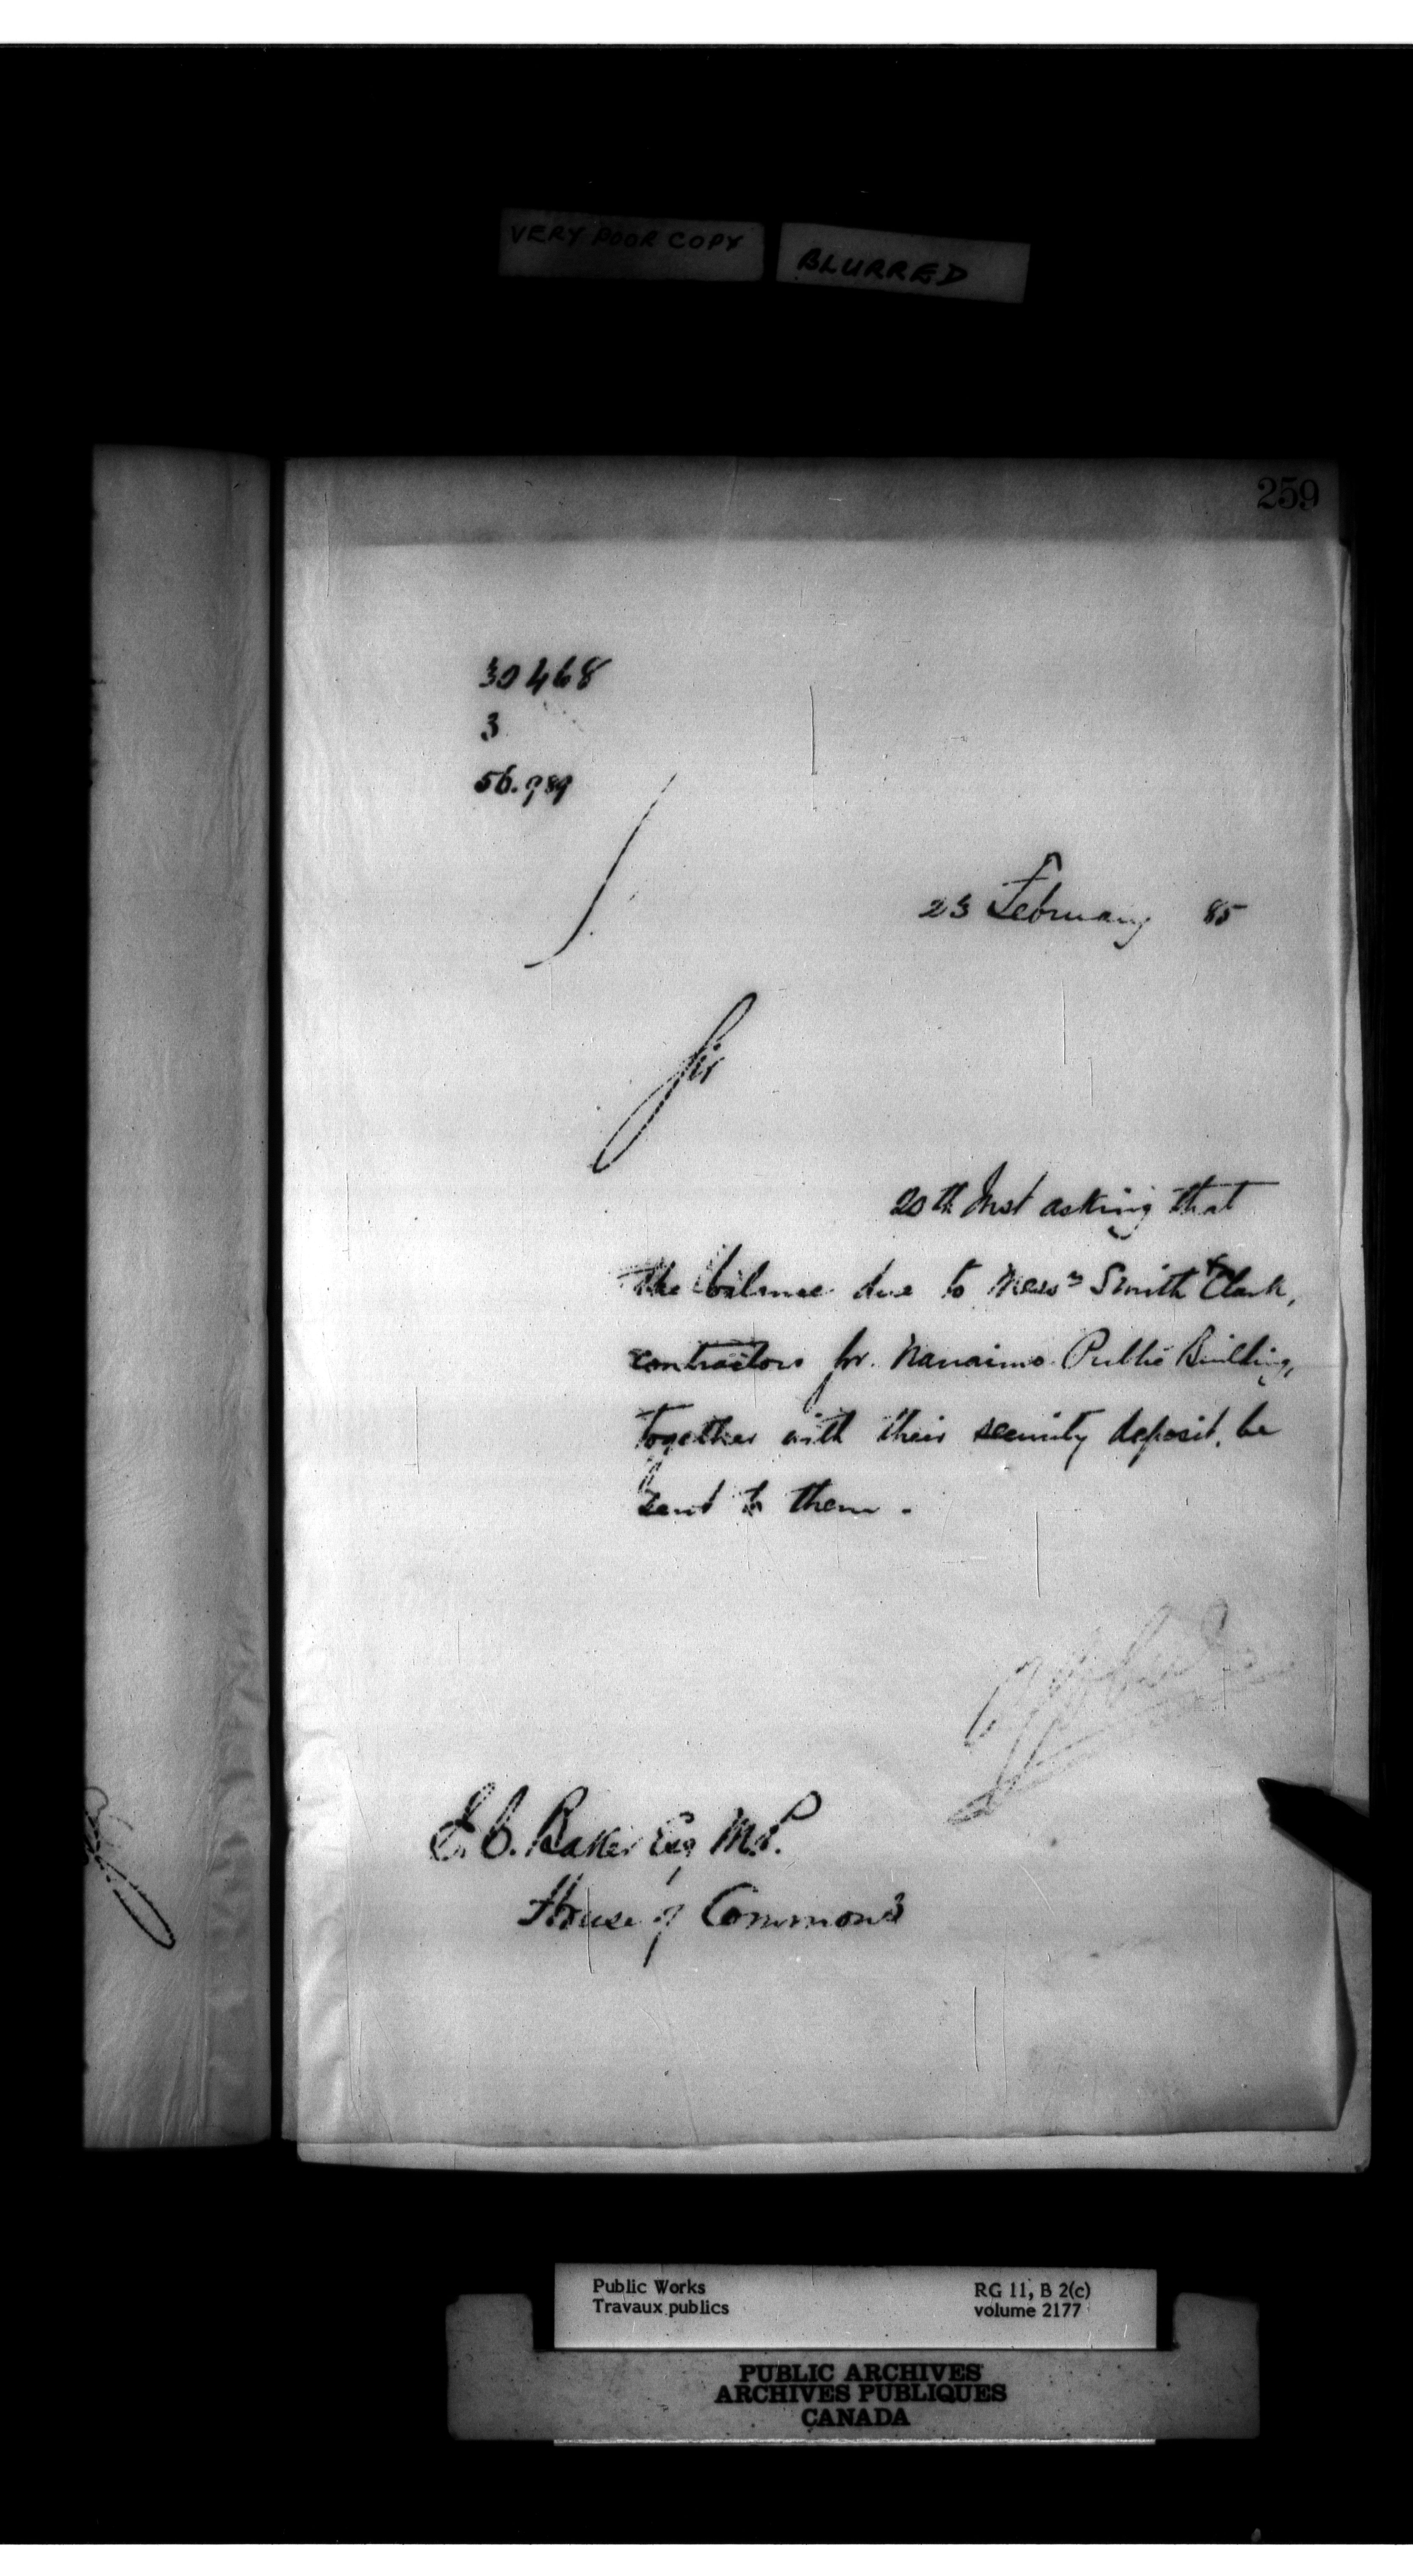 VERY POOR COPY BLURRED
259
30468
3
56.989
23 February 85
Sir
20th Inst asking that
the balance due to Messrs Smith & Clark,
contractors for Nanaimo Public Building,
together with their security deposit, be
sent to them.
E. C. Baker Esq M.P.
House of Commons
Public Works RG 11, B 2(c)
Travaux publics volume 2177
PUBLIC ARCHIVES
ARCHIVES PUBLIQUES
CANADA